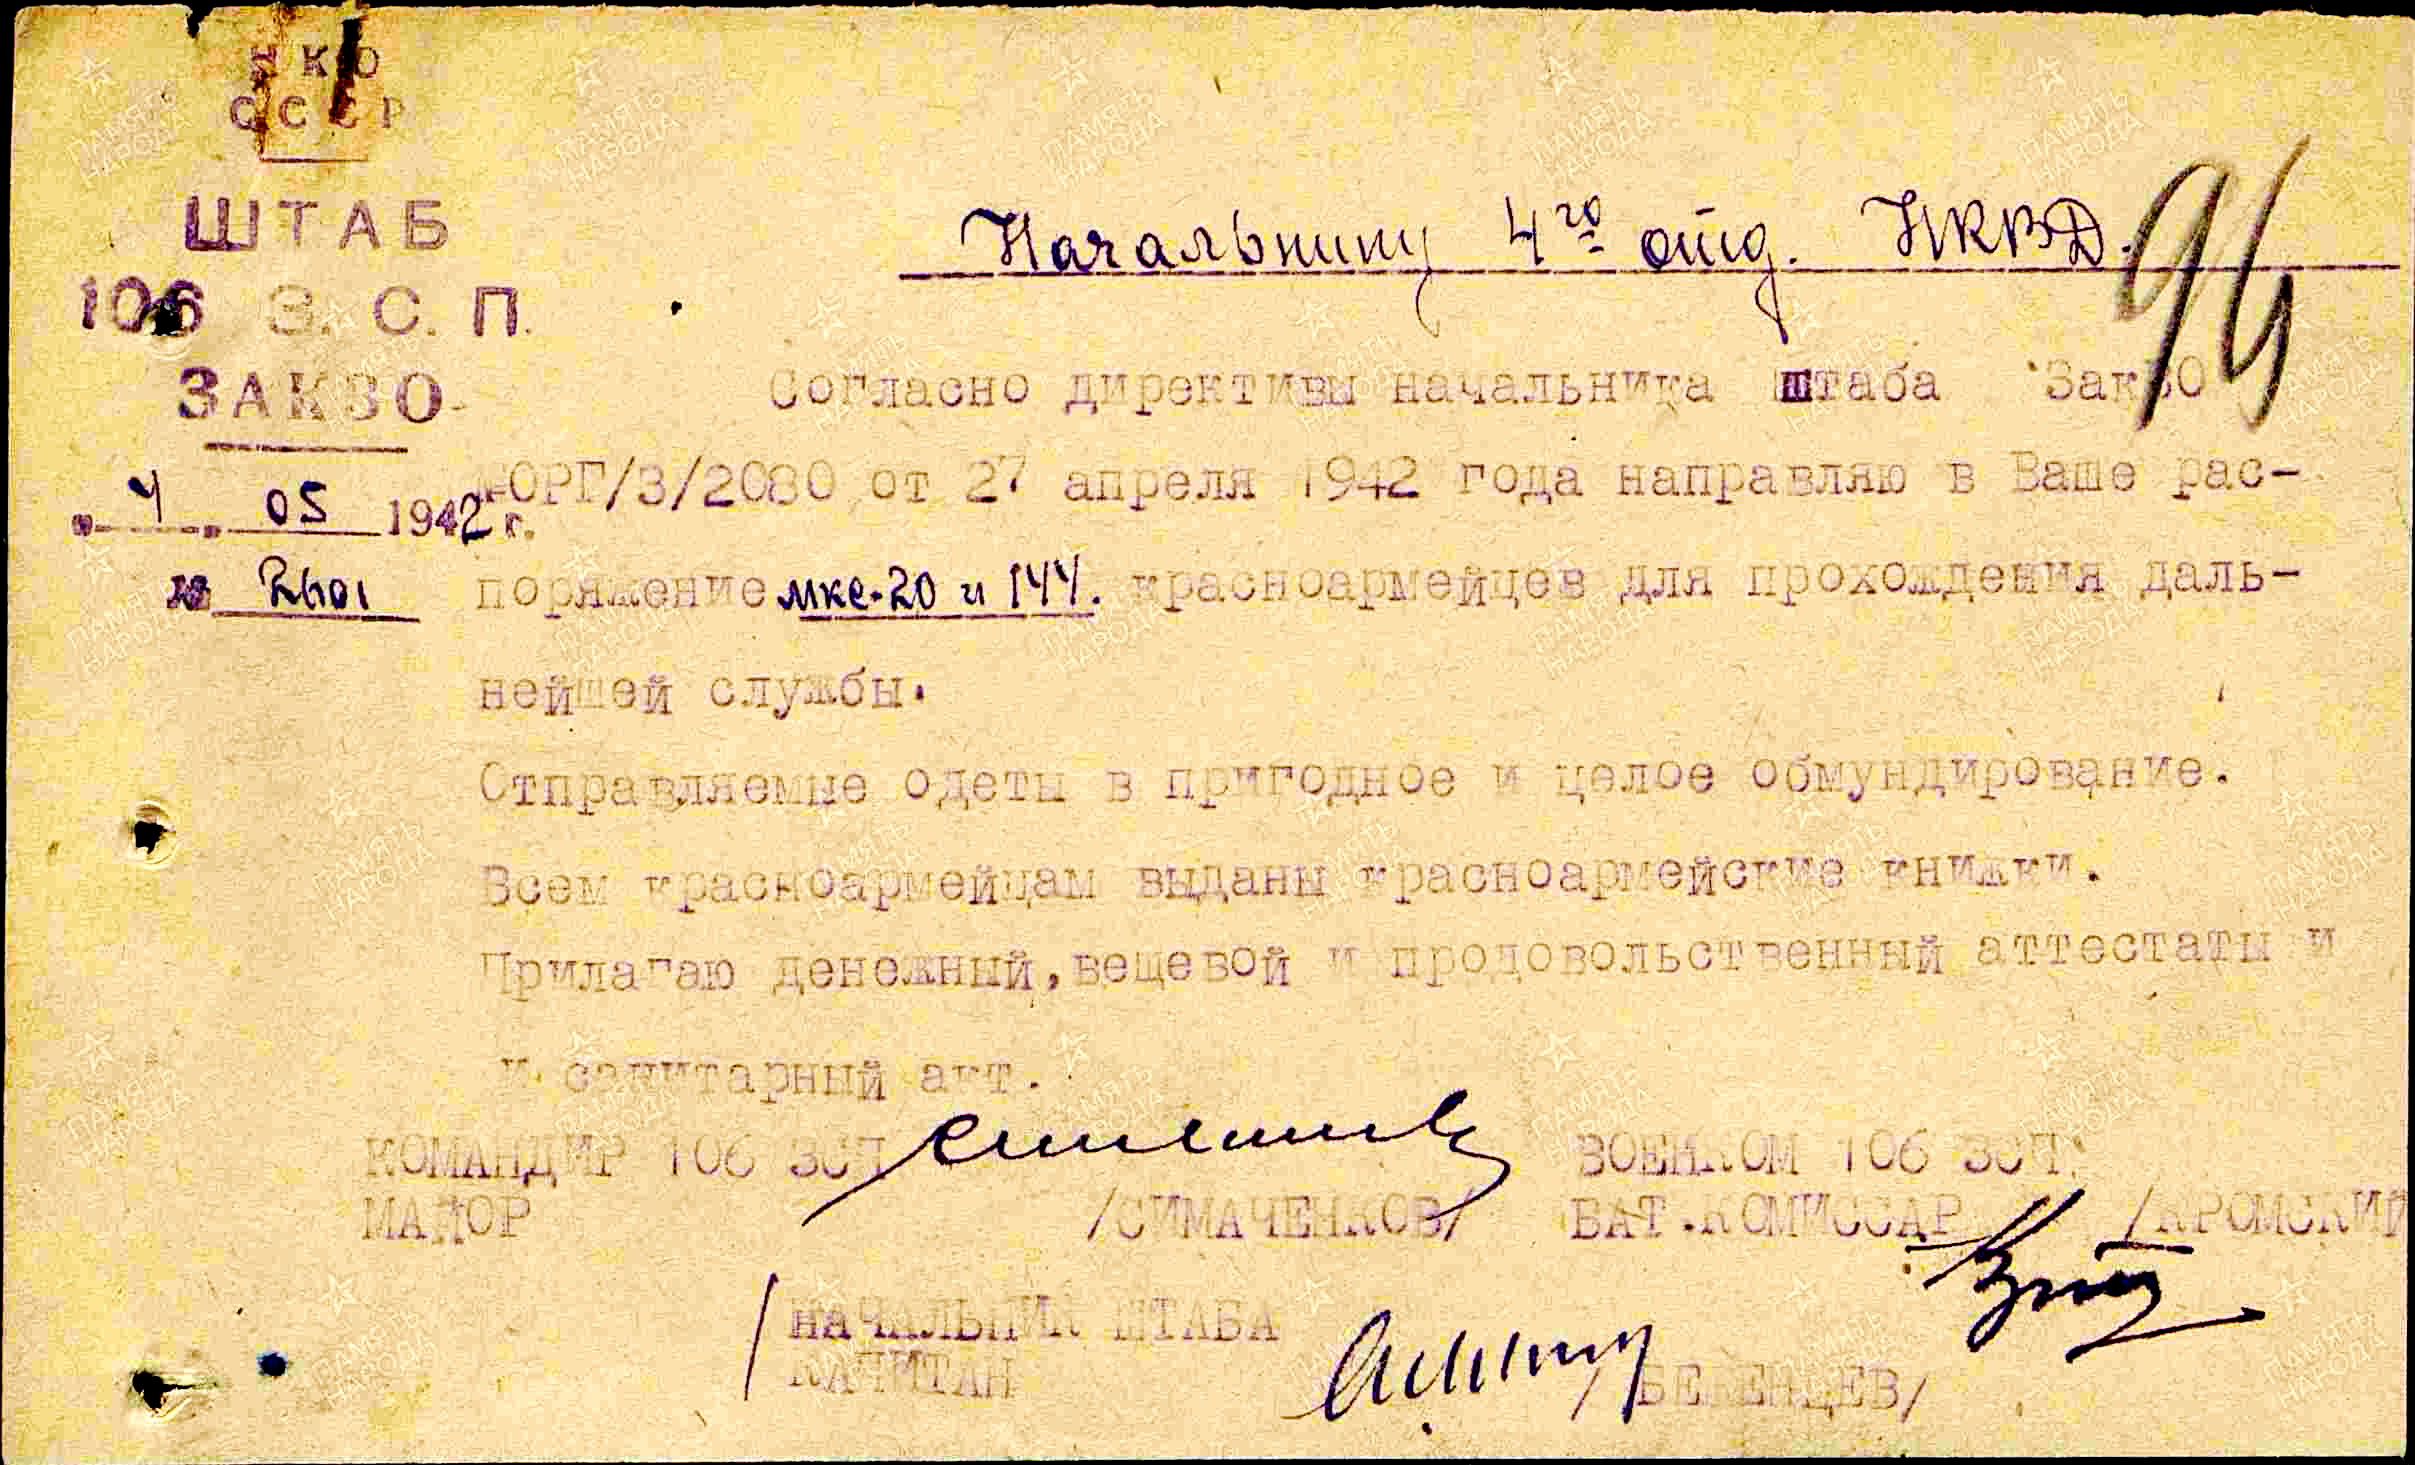 НКО
СССР
ШТАБ
106 З. С. П.
ЗАКЗО
4 05 1942 г.
№
Начальнику 4го отд. НКВД.
94
Согласно директивы начальника штаба ЗакВО
ОРГ/3/2080 от 27 апреля 1942 года направляю в Ваше рас-
поряжение мкс-20 и 144. красноармейцев для прохождения даль-
нейшей службы.
Отправляемые одеты в пригодное и целое обмундирование.
Всем красноармейцам выданы красноармейские книжки.
Прилагаю денежный, вещевой и продовольственный аттестаты и
и санитарный акт.
КОМАНДИР 106 ЗСП ВОЕНКОМ 106 ЗСП
МАЙОР /СИМАЧЕНКОВ/ БАТ.КОМИССАР /КРОМСКИЙ
НАЧАЛЬНИК ШТАБА
КАПИТАН /БЕРЕНЦЕВ/
ПАМЯТЬ НАРОДА